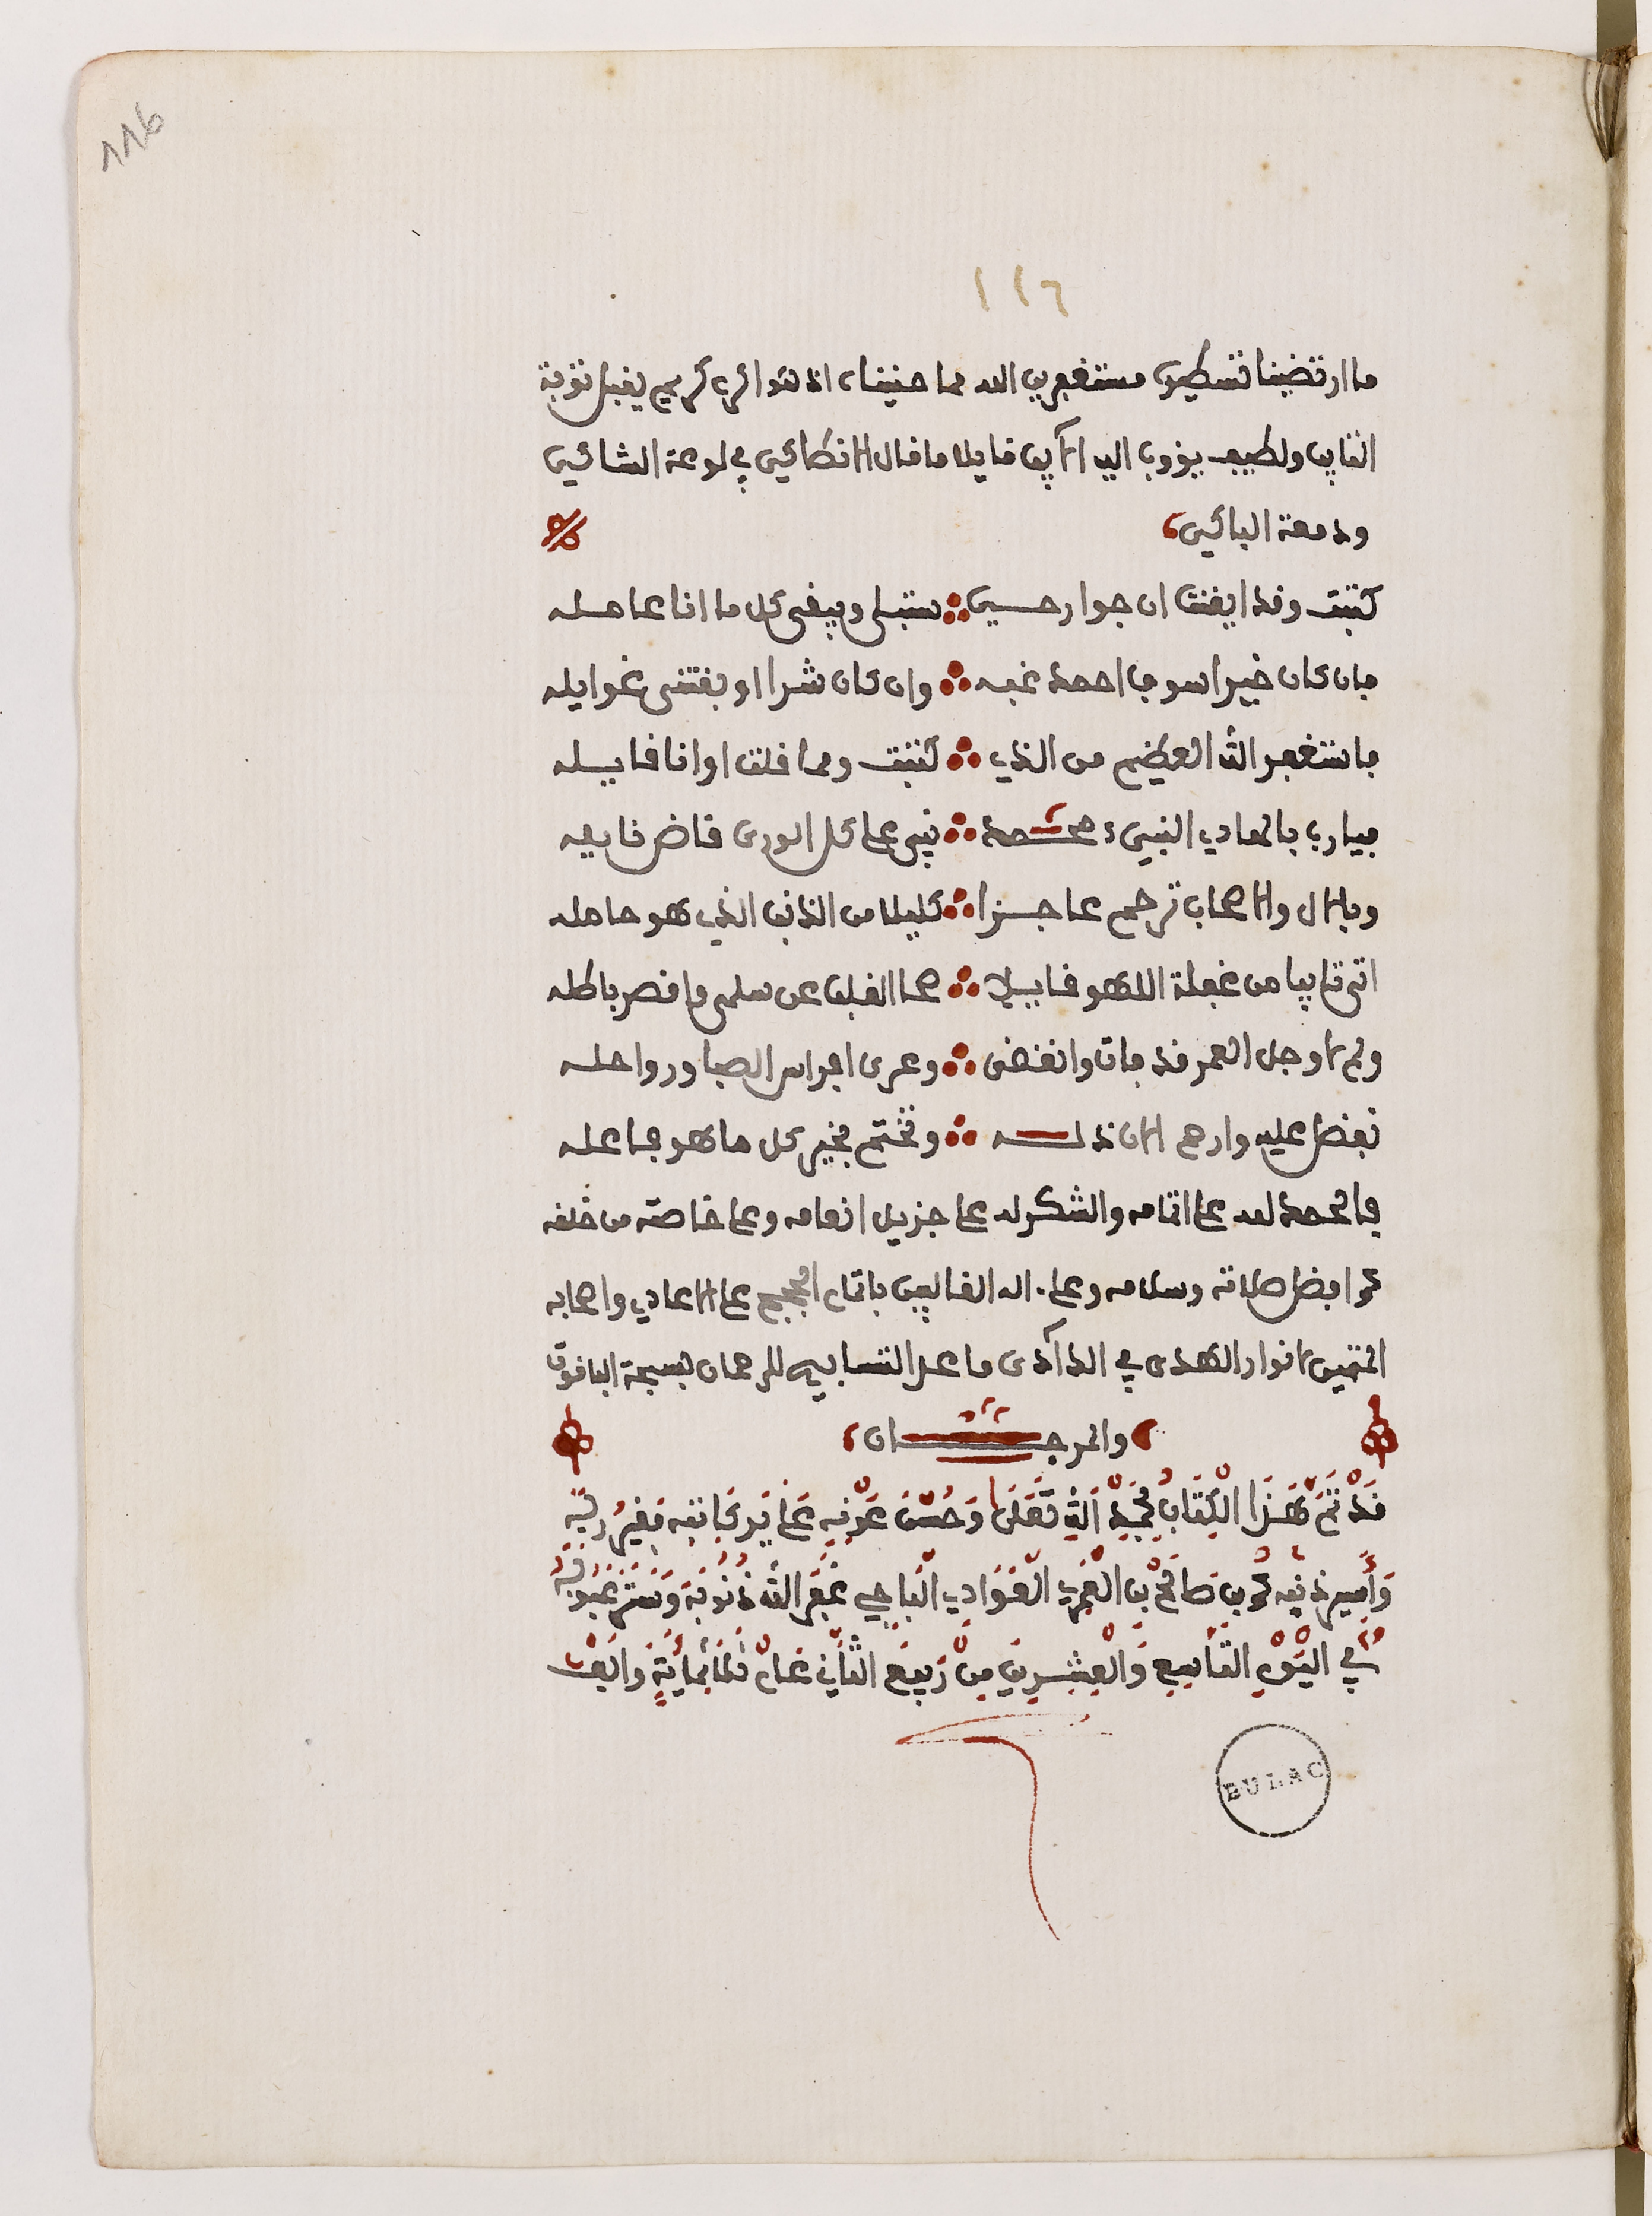 116
١١٦
ما ارتضينا تسطيره مستغفرين الله مما جنيناه انه هو اكرم كريم يقبل توبة
التايب ولطيف يؤوب اليه الآيب قايلا ما قال الانطاكي في لوعة الشاكي
ودمعة الباكي
كتبت وقد ايقنت ان جوارحي ستبلى ويبقى كل ما انا عامله
فان كان خيرا سوف احمد غبه وان كان شرا اوبقتني غوايله
فاستغفر الله العظيم من الذي كتبت ومما قلت او انا قايله
فيارب بالهادي النبيء محمد نبي على كل الورى فاض نايله
وبالال والاصحاب ترحم عاجزا كليلا من الذنب الذي هو حامله
اتى تايبا من غفلة اللهو قايلا صحا القلب عن سلمى واقصر باطله
ولم لا وجل العمر قد فات وانقضى وعرى افراس الصبا ورواحله
تفضل عليه وارحم الان ذله وتختم بخير كل ما هو فاعله
فالحمد لله على اتمامه والشكر له على جزيل انعامه وعلى خاصته من خلقه
افضل صلاته وسلامه وعلى اله الغالبين باتمام الحجج على الاعادي واصحابه
لانوار الهدى في الدآدي ما علم التسابيح للرحمان بسبحة الياقوت
والمرجان
قَدْ تَمَّ هَذَا الْكِتَابُ بِحَمْدِ اللَّهِ تَعَلَى وَحُسْنِ عَوْنِهِ عَلَى يَدِ كَاتِبِهِ فَقِيرِ رَبِّهِ
وَأَسِيرِ ذَنْبِهِ بن بن الْعَوَّادِي الْبَاجِي غَفَرَ اللَّه ذُنُوبَهُ وَسَتَرَ عُيُوبَهُ
فِي الْيَوْمِ التَّاسِعِ وَالْعِشْرِينَ مِنْ رَبِيعِ الثَّانِي عَامْ ثَلَاثِمِائَةٍ وَأَلْف
BULAC